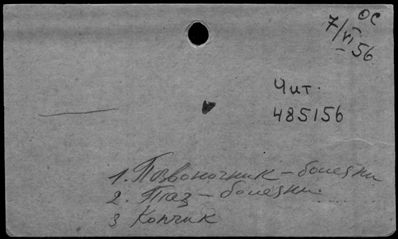 ОС
7/VI 56
Чит.
485156
1. Позвоночник – болезни
2. Таз – болезни.
3 Копчик